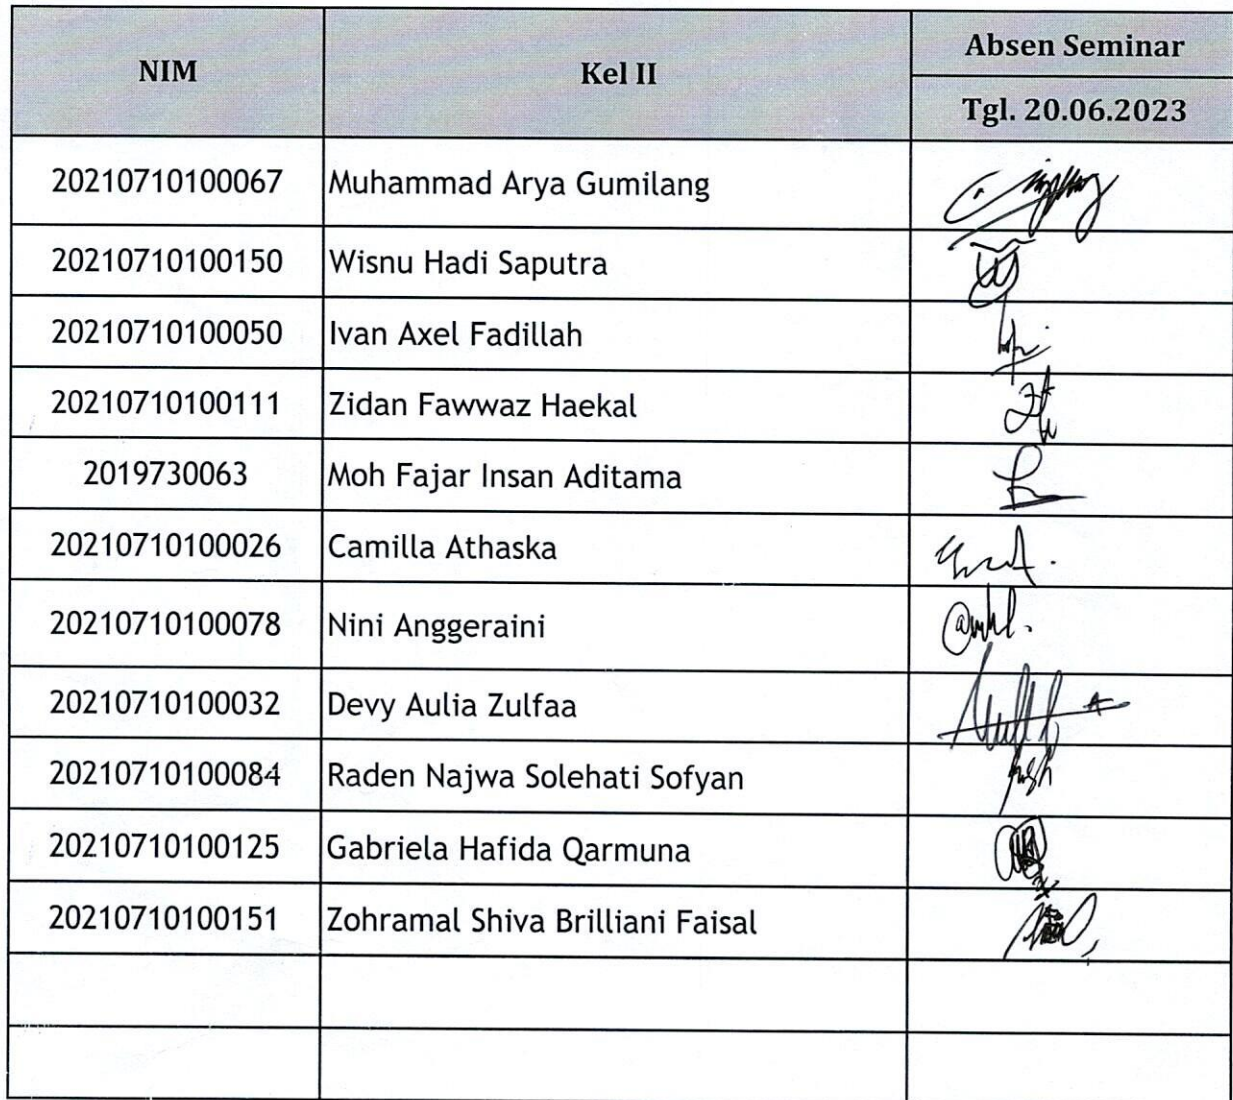 NIM Kel II Absen Seminar
Tgl. 20.06.2023
20210710100067 Muhammad Arya Gumilang
20210710100150 Wisnu Hadi Saputra
20210710100050 Ivan Axel Fadillah
20210710100111 Zidan Fawwaz Haekal
2019730063 Moh Fajar Insan Aditama
20210710100026 Camilla Athaska
20210710100078 Nini Anggeraini
20210710100032 Devy Aulia Zulfaa
20210710100084 Raden Najwa Solehati Sofyan
20210710100125 Gabriela Hafida Qarmuna
20210710100151 Zohramal Shiva Brilliani Faisal